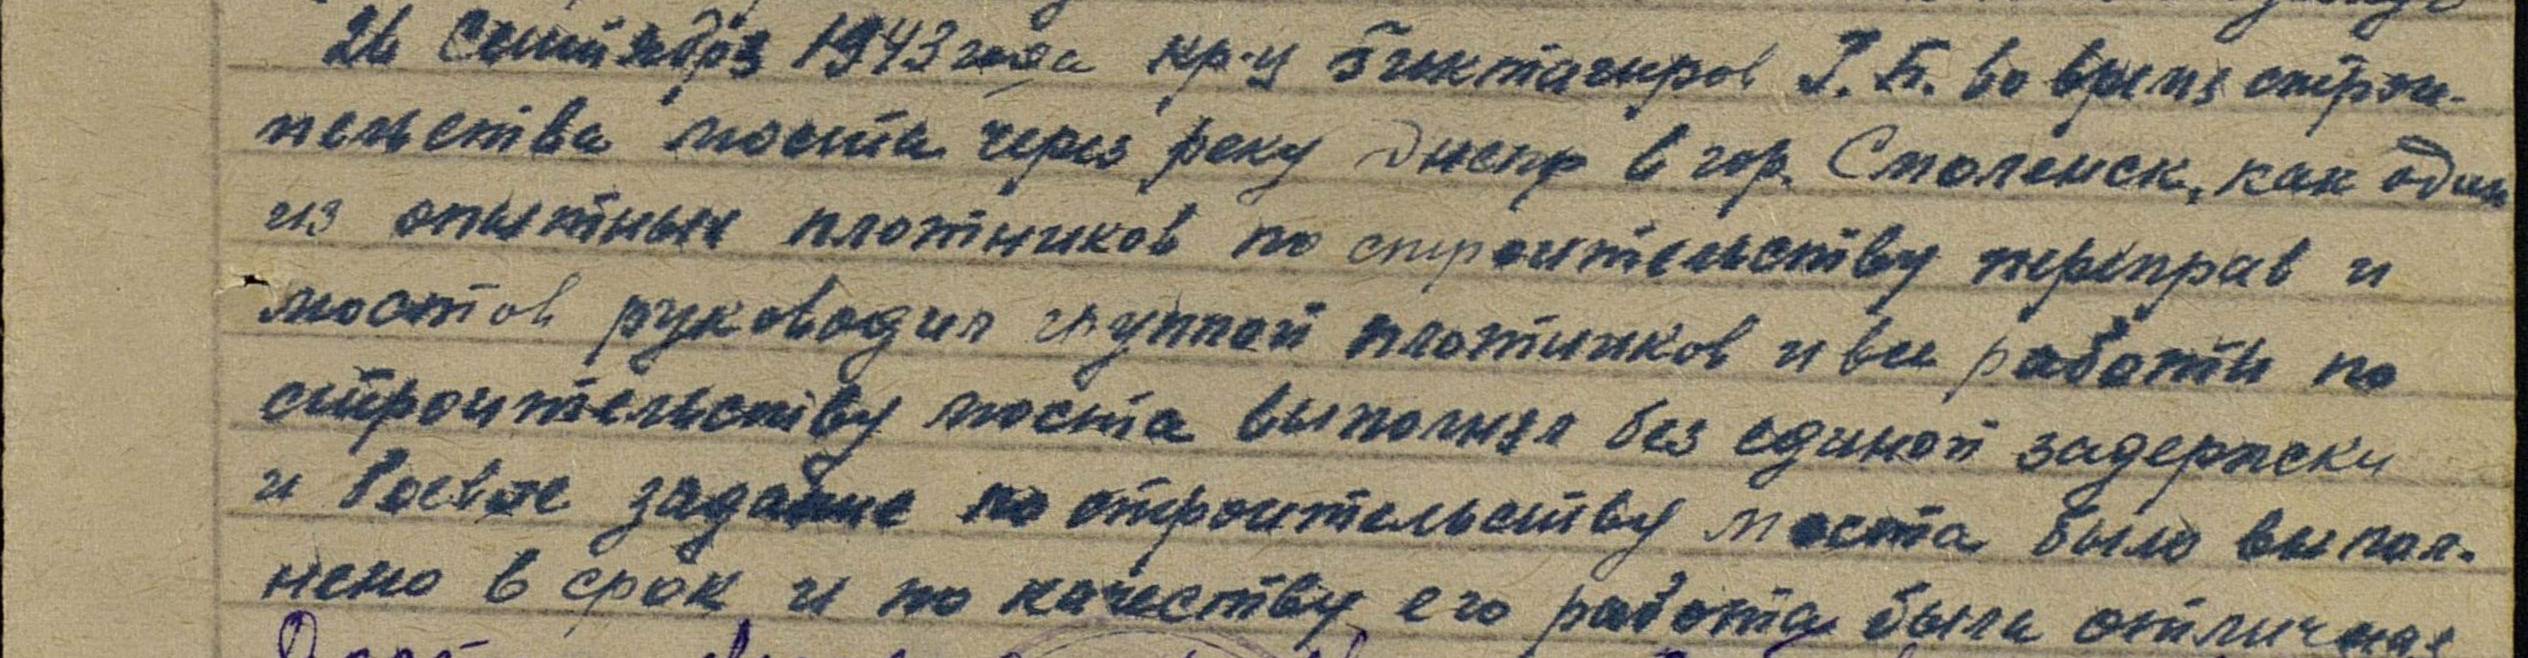 26 Сентября 1943 года кр-ц Биктагиров Г. Б. во время строи-
тельства моста через реку Днепр в гор. Смоленск, как один
из опытных плотников по строительству переправ и
мостов руководил группой плотников и все работы по
строительству моста выполнял без единой задержки
и боевое задание по строительству моста было выпол-
нено в срок и по качеству его работа была отличная